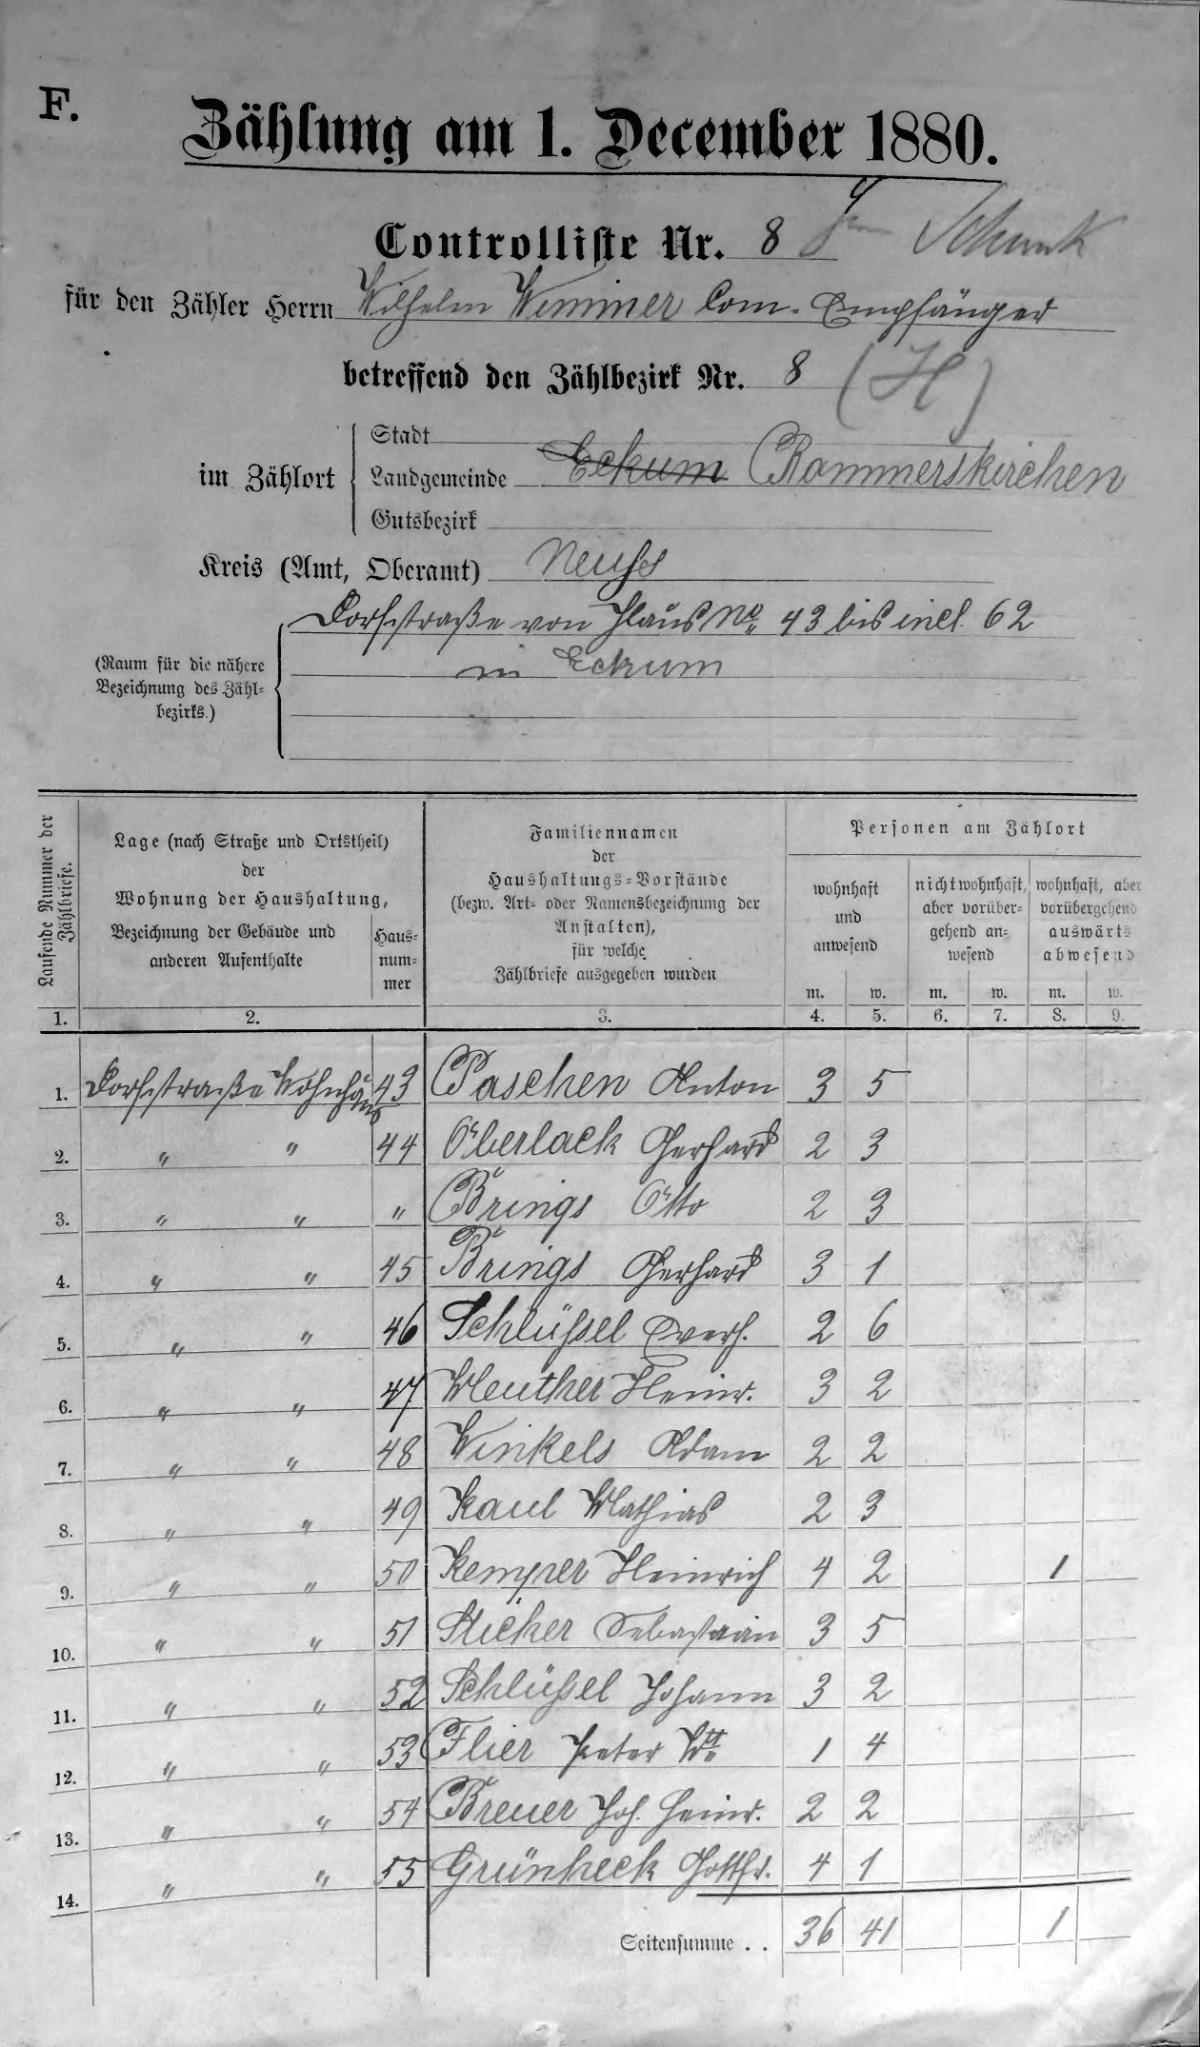 F.
Zählung am 1. December 1880.
Controlliste Nr. 8 Schunk
für den Zähler Herrn Wilhelm Wimmer Com. Empfänger
betreffend den Zählbezirk Nr. 8 (H)
im Zählort
Stadt
Landgemeinde Eckum Rommerskirchen
Gutsbezirk
Kreis (Amt, Oberamt) Neuss
(Raum für die nähere Bezeichnung des Zähl-
bezirks.)
Dorfstraße von Haus No. 43 bis incl. 62
in Eckum
Laufende Nummer der Zählbriefe.
Lage (nach Straße und Ortstheil)
der
Wohnung der Haushaltung,
Bezeichnung der Gebäude und
anderen Aufenthalte
Haus-
num-
mer
Familiennamen
der
Haushaltungs-Vorstände
(bezw. Art- oder Namensbezeichnung der
Anstalten),
für welche
Zählbriefe ausgegeben wurden
Personen am Zählort
wohnhaft
und
anwesend
nicht wohnhaft,
aber vorüber-
gehend an-
wesend
wohnhaft, aber
vorübergehend
auswärts
abwesend
m. w. m. w. m. w.
1. 2. 3. 4. 5. 6. 7. 8. 9.
1. Dorfstraße Wohnhaus 43 Paschen Anton 3 5
2. " " 44 Oberlack Gerhard 2 3
3. " " " Brings Otto 2 3
4. " " 45 Brings Gerhard 3 1
5. " " 46 Schlüssel Everh. 2 6
6. " " 47 Meuther Heinr. 3 2
7. " " 48 Winkels Adam 2 2
8. " " 49 Kaul Mathias 2 3
9. " " 50 Kemper Heinrich 4 2 1
10. " " 51 Sticker Sebastian 3 5
11. " " 52 Schlüssel Johann 3 2
12. " " 53 Flier Peter Wtt 1 4
13. " " 54 Breuer Joh. Heinr. 2 2
14. " " 55 Grünheck Gottfr. 4 1
Seitensumme . . 36 41 1